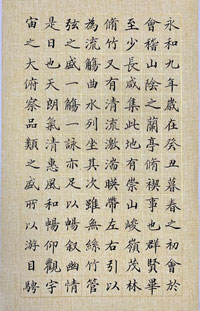 永和九年歲在癸丑暮春之初會於
會稽山陰之蘭亭脩禊事也群賢畢
至少長咸集此地有崇山峻嶺茂林
脩竹又有清流激湍暎帶左右引以
為流觴曲水列坐其次雖無絲竹管
弦之盛一觴一詠亦足以暢叙幽情
是日也天朗氣清惠風和暢仰觀宇
宙之大俯察品類之盛所以游目騁